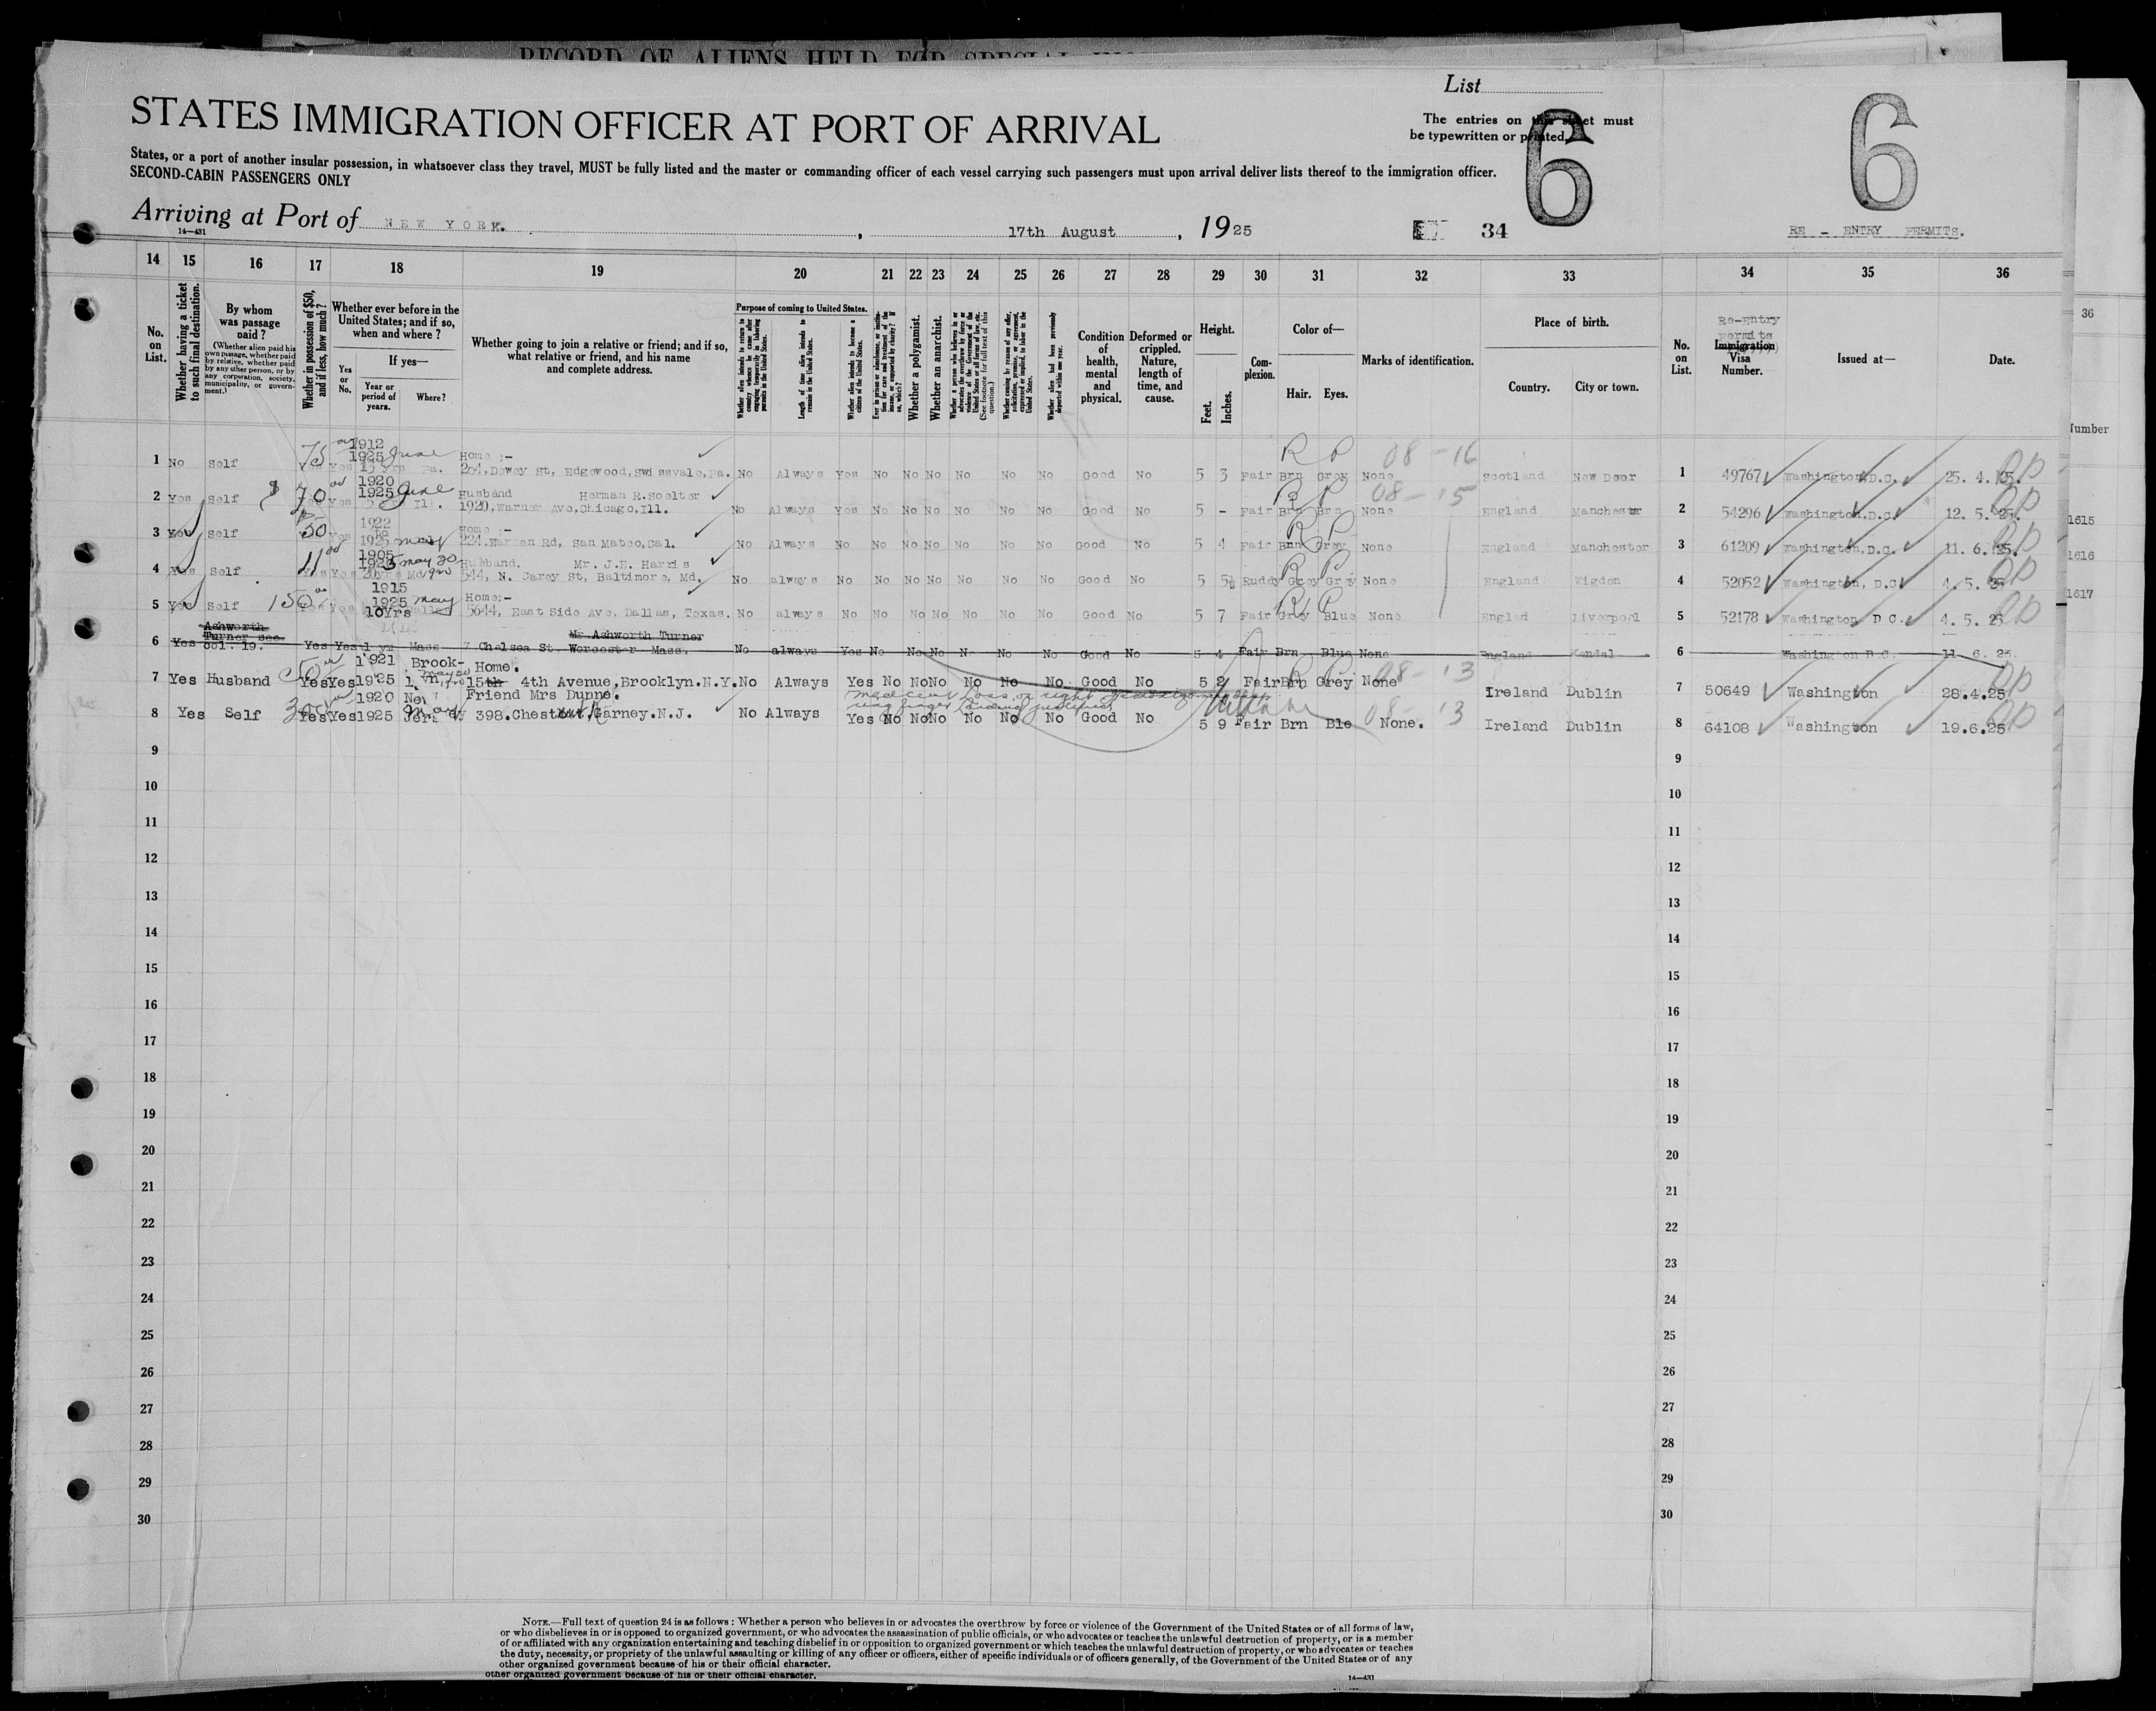 RECORD OF ALIENS HELD FOR SPECIAL
List
STATES IMMIGRATION OFFICER AT PORT OF ARRIVAL
The entries on this sheet must
be typewritten or printed.
6
6
States, or a port of another insular possession, in whatsoever class they travel, MUST be fully listed and the master or commanding officer of each vessel carrying such passengers must upon arrival deliver lists thereof to the immigration officer.
SECOND-CABIN PASSENGERS ONLY
Arriving at Port of NEW YORK. , 17th August , 1925
14—431
34
RE - ENTRY PERMITS.
14 15 16 17 18 19 20 21 22 23 24 25 26 27 28 29 30 31 32 33 34 35 36
No. on List.
Whether having a ticket to such final destination.
By whom was passage paid?
(Whether alien paid his own passage, whether paid by relative, whether paid by any other person, or by any corporation, society, municipality, or government.)
Whether in possession of $50, and if less, how much?
Whether ever before in the United States; and if so, when and where?
Yes or No.
If yes—
Year or period of years.
Where?
Whether going to join a relative or friend; and if so, what relative or friend, and his name and complete address.
Purpose of coming to United States.
Length of time alien intends to remain in the United States.
Whether alien intends to become a citizen of the United States.
Whether a polygamist.
Whether an anarchist.
Condition of health, mental and physical.
Deformed or crippled. Nature, length of time, and cause.
Height.
Feet.
Inches.
Complexion.
Color of—
Hair. Eyes.
Marks of identification.
Place of birth.
Country. City or town.
No. on List.
Re-Entry permits
Immigration Visa Number.
Issued at—
Date.
36
Number
1 No Self 75 Yes Yes 1912 1925 June 13 yrs Pa. Home :- 204, Dewey St, Edgewood, Swissvale, Pa. No Always Yes No No No No No No Good No 5 3 Fair Brn Grey None 08-16 Scotland New Deer 1 49767 Washington, D.C. 25. 4. 25.
2 Yes Self $ 70 Yes 1920 1925 June Ill. Husband Herman R. Soelter 1920, Warner Ave, Chicago, Ill. No Always Yes No No No No No No Good No 5 - Fair Brn Brn None 08-15 England Manchester 2 54296 Washington, D.C. 12. 5. 25.
3 Yes Self 50 Yes 1922 1925 Home :- 224. Rd, San Mateo, Cal. No Always No No No No No No No Good No 5 4 Fair Brn Grey None England Manchester 3 61209 Washington, D.C. 11. 6. 25.
4 Yes Self 11 Yes Yes 1905 1925 May 20 20yrs Md Husband. Mr. J.E. Harris 544, N. Carey St, Baltimore, Md. No always No No No No No No No Good No 5 5½ Ruddy Grey Grey None England Wigdon 4 52052 Washington, D.C. 4. 5. 25
5 Yes Self 150 Yes 1915 1925 May 10Yrs Dallas Home:- 5644, East Side Ave, Dallas, Texas. No always No No No No No No No Good No 5 7 Fair Grey Blue None Englad Liverpool 5 52178 Washington D C. 4. 5. 25
6 Yes Ashworth Turner see col. 19. Yes Yes 1 yr Mass Mr Ashworth Turner 7 Chelsea St. Worcester Mass. No always Yes No No No No No No Good No 5 4 Fair Brn Blue None England Kendal 6 Washington D.C. 11 6. 25.
7 Yes Husband 50 Yes Yes 1921 1925 Brook- Home. 15th 4th Avenue, Brooklyn. N.Y. No Always Yes No No No No No No Good No 5 2 Fair Brn Grey None 08-13 Ireland Dublin 7 50649 Washington 28.4.25
8 Yes Self Yes Yes 1920 1925 New Jer. Friend Mrs Dunne. 398. Chestnut, Garney. N.J. No Always Yes No No No No No No Good No 5 9 Fair Brn Ble None. 08-13 Ireland Dublin 8 64108 Washington 19.6.25
1615
1616
1617
9 9
10 10
11 11
12 12
13 13
14 14
15 15
16 16
17 17
18 18
19 19
20 20
21 21
22 22
23 23
24 24
25 25
26 26
27 27
28 28
29 29
30 30
NOTE.—Full text of question 24 is as follows: Whether a person who believes in or advocates the overthrow by force or violence of the Government of the United States or of all forms of law,
or who disbelieves in or is opposed to organized government, or who advocates the assassination of public officials, or who advocates or teaches the unlawful destruction of property, or is a member
of or affiliated with any organization entertaining and teaching disbelief in or opposition to organized government or which teaches the unlawful destruction of property, or who advocates or teaches
the duty, necessity, or propriety of the unlawful assaulting or killing of any officer or officers, either of specific individuals or of officers generally, of the Government of the United States or of any
other organized government because of his or their official character.
other organized government because of his or their official character.
14—431